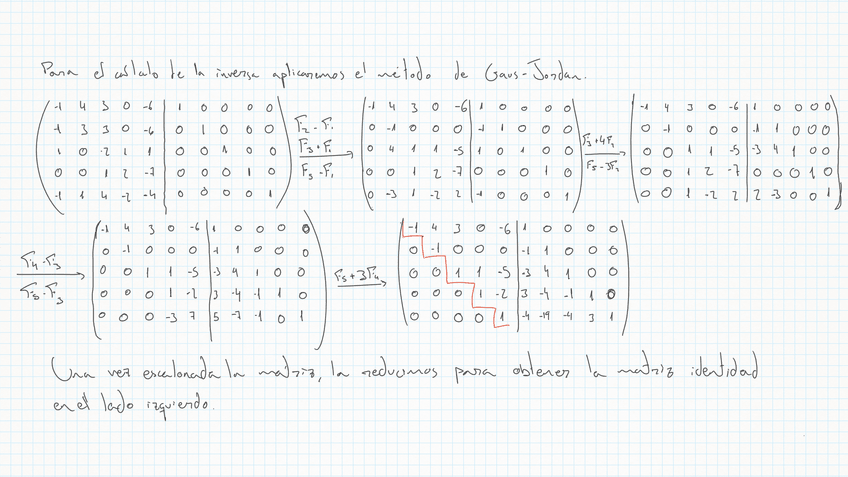 Para el cálculo de la inversa aplicaremos el método de Gaus-Jordan.
-1 4 3 0 -6 | 1 0 0 0 0
-1 3 3 0 -6 | 0 1 0 0 0
1 0 -2 1 1 | 0 0 1 0 0
0 0 1 2 -7 | 0 0 0 1 0
-1 1 4 -2 -4 | 0 0 0 0 1
F2-F1
F3+F1
F5-F1
-1 4 3 0 -6 | 1 0 0 0 0
0 -1 0 0 0 | -1 1 0 0 0
0 4 1 1 -5 | 1 0 1 0 0
0 0 1 2 -7 | 0 0 0 1 0
0 -3 1 -2 2 | -1 0 0 0 1
F3+4F2
F5-3F2
-1 4 3 0 -6 | 1 0 0 0 0
0 -1 0 0 0 | -1 1 0 0 0
0 0 1 1 -5 | -3 4 1 0 0
0 0 1 2 -7 | 0 0 0 1 0
0 0 1 -2 2 | 2 -3 0 0 1
F4-F3
F5-F3
-1 4 3 0 -6 | 1 0 0 0 0
0 -1 0 0 0 | -1 1 0 0 0
0 0 1 1 -5 | -3 4 1 0 0
0 0 0 1 -2 | 3 -4 -1 1 0
0 0 0 -3 7 | 5 -7 -1 0 1
F5+3F4
-1 4 3 0 -6 | 1 0 0 0 0
0 -1 0 0 0 | -1 1 0 0 0
0 0 1 1 -5 | -3 4 1 0 0
0 0 0 1 -2 | 3 -4 -1 1 0
0 0 0 0 1 | -4 -19 -4 3 1
Una vez escalonada la matriz, la reducimos para obtener la matriz identidad
en el lado izquierdo.